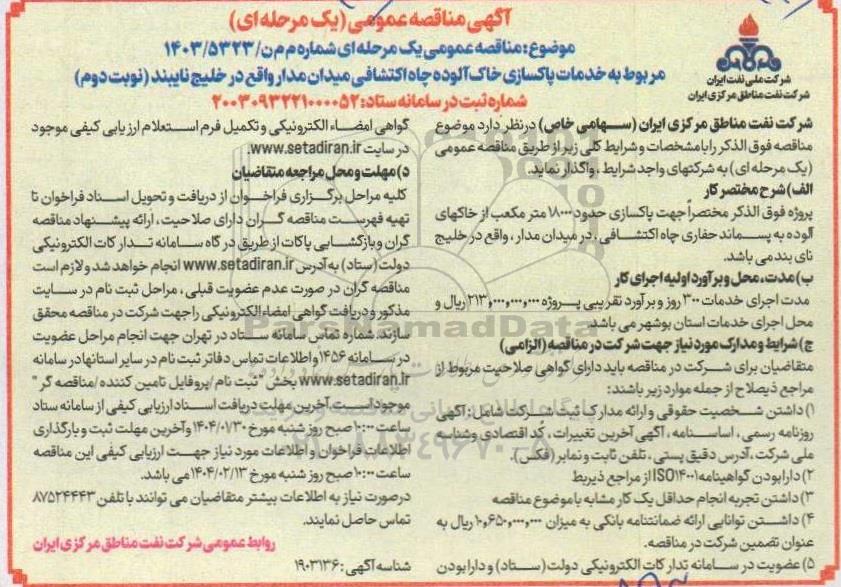 آگهی مناقصه عمومی (یک مرحله ای)
موضوع: مناقصه عمومی یک مرحله ای شماره م م ن/۱۴۰۳/۵۳۲۳
مربوط به خدمات پاکسازی خاک آلوده چاه اکتشافی میدان مدار واقع در خلیج نایبند (نوبت دوم)
شماره ثبت در سامانه ستاد: ۲۰۰۳۰۹۳۲۲۱۰۰۰۰۵۲
شرکت ملی نفت ایران
شرکت نفت مناطق مرکزی ایران
شرکت نفت مناطق مرکزی ایران (سهامی خاص) در نظر دارد موضوع
مناقصه فوق الذکر را با مشخصات و شرایط کلی زیر از طریق مناقصه عمومی
(یک مرحله ای) به شرکتهای واجد شرایط، واگذار نماید.
الف) شرح مختصر کار
پروژه فوق الذکر مختصراً جهت پاکسازی حدود ۱۸۰۰۰ متر مکعب از خاکهای
آلوده به پسماند حفاری چاه اکتشافی، در میدان مدار، واقع در خلیج
نای بند می باشد.
ب) مدت، محل و برآورد اولیه اجرای کار
مدت اجرای خدمات ۳۰۰ روز و برآورد تقریبی پروژه ۲۱۳,۰۰۰,۰۰۰,۰۰۰ ریال و
محل اجرای خدمات استان بوشهر می باشد.
ج) شرایط و مدارک مورد نیاز جهت شرکت در مناقصه (الزامی)
متقاضیان برای شرکت در مناقصه باید دارای گواهی صلاحیت مربوط از
مراجع ذیصلاح از جمله موارد زیر باشند:
۱) داشتن شخصیت حقوقی و ارائه مدارک ثبت شرکت شامل: آگهی
روزنامه رسمی، اساسنامه، آگهی آخرین تغییرات، کد اقتصادی و شناسه
ملی شرکت، آدرس دقیق پستی، تلفن ثابت و نمابر (فکس).
۲) دارا بودن گواهینامه ISO۱۴۰۰۱ از مراجع ذیربط
۳) داشتن تجربه انجام حداقل یک کار مشابه با موضوع مناقصه
۴) داشتن توانایی ارائه ضمانتنامه بانکی به میزان ۱۰,۶۵۰,۰۰۰,۰۰۰ ریال به
عنوان تضمین شرکت در مناقصه.
۵) عضویت در سامانه تدارکات الکترونیکی دولت (ستاد) و دارا بودن
گواهی امضاء الکترونیکی و تکمیل فرم استعلام ارزیابی کیفی موجود
در سایت www.setadiran.ir.
د) مهلت و محل مراجعه متقاضیان
کلیه مراحل برگزاری فراخوان از دریافت و تحویل اسناد فراخوان تا
تهیه فهرست مناقصه گران دارای صلاحیت، ارائه پیشنهاد مناقصه
گران و بازگشایی پاکات از طریق درگاه سامانه تدارکات الکترونیکی
دولت (ستاد) به آدرس www.setadiran.ir انجام خواهد شد و لازم است
مناقصه گران در صورت عدم عضویت قبلی، مراحل ثبت نام در سایت
مذکور و دریافت گواهی امضاء الکترونیکی را جهت شرکت در مناقصه محقق
سازند. شماره تماس سامانه ستاد در تهران جهت انجام مراحل عضویت
در سامانه ۱۴۵۶ و اطلاعات تماس دفاتر ثبت نام در سایر استانها در سامانه
www.setadiran.ir بخش "ثبت نام/پروفایل تامین کننده/مناقصه گر"
موجود است. آخرین مهلت دریافت اسناد ارزیابی کیفی از سامانه ستاد
ساعت ۱۰:۰۰ صبح روز شنبه مورخ ۱۴۰۴/۰۱/۳۰ و آخرین مهلت ثبت و بارگذاری
اطلاعات فراخوان و اطلاعات مورد نیاز جهت ارزیابی کیفی این مناقصه
ساعت ۱۰:۰۰ صبح روز شنبه مورخ ۱۴۰۴/۰۲/۱۳ می باشد.
در صورت نیاز به اطلاعات بیشتر متقاضیان می توانند با تلفن ۸۷۵۲۴۴۴۳
تماس حاصل نمایند.
روابط عمومی شرکت نفت مناطق مرکزی ایران
شناسه آگهی: ۱۹۰۳۱۳۶
ParsNamadData